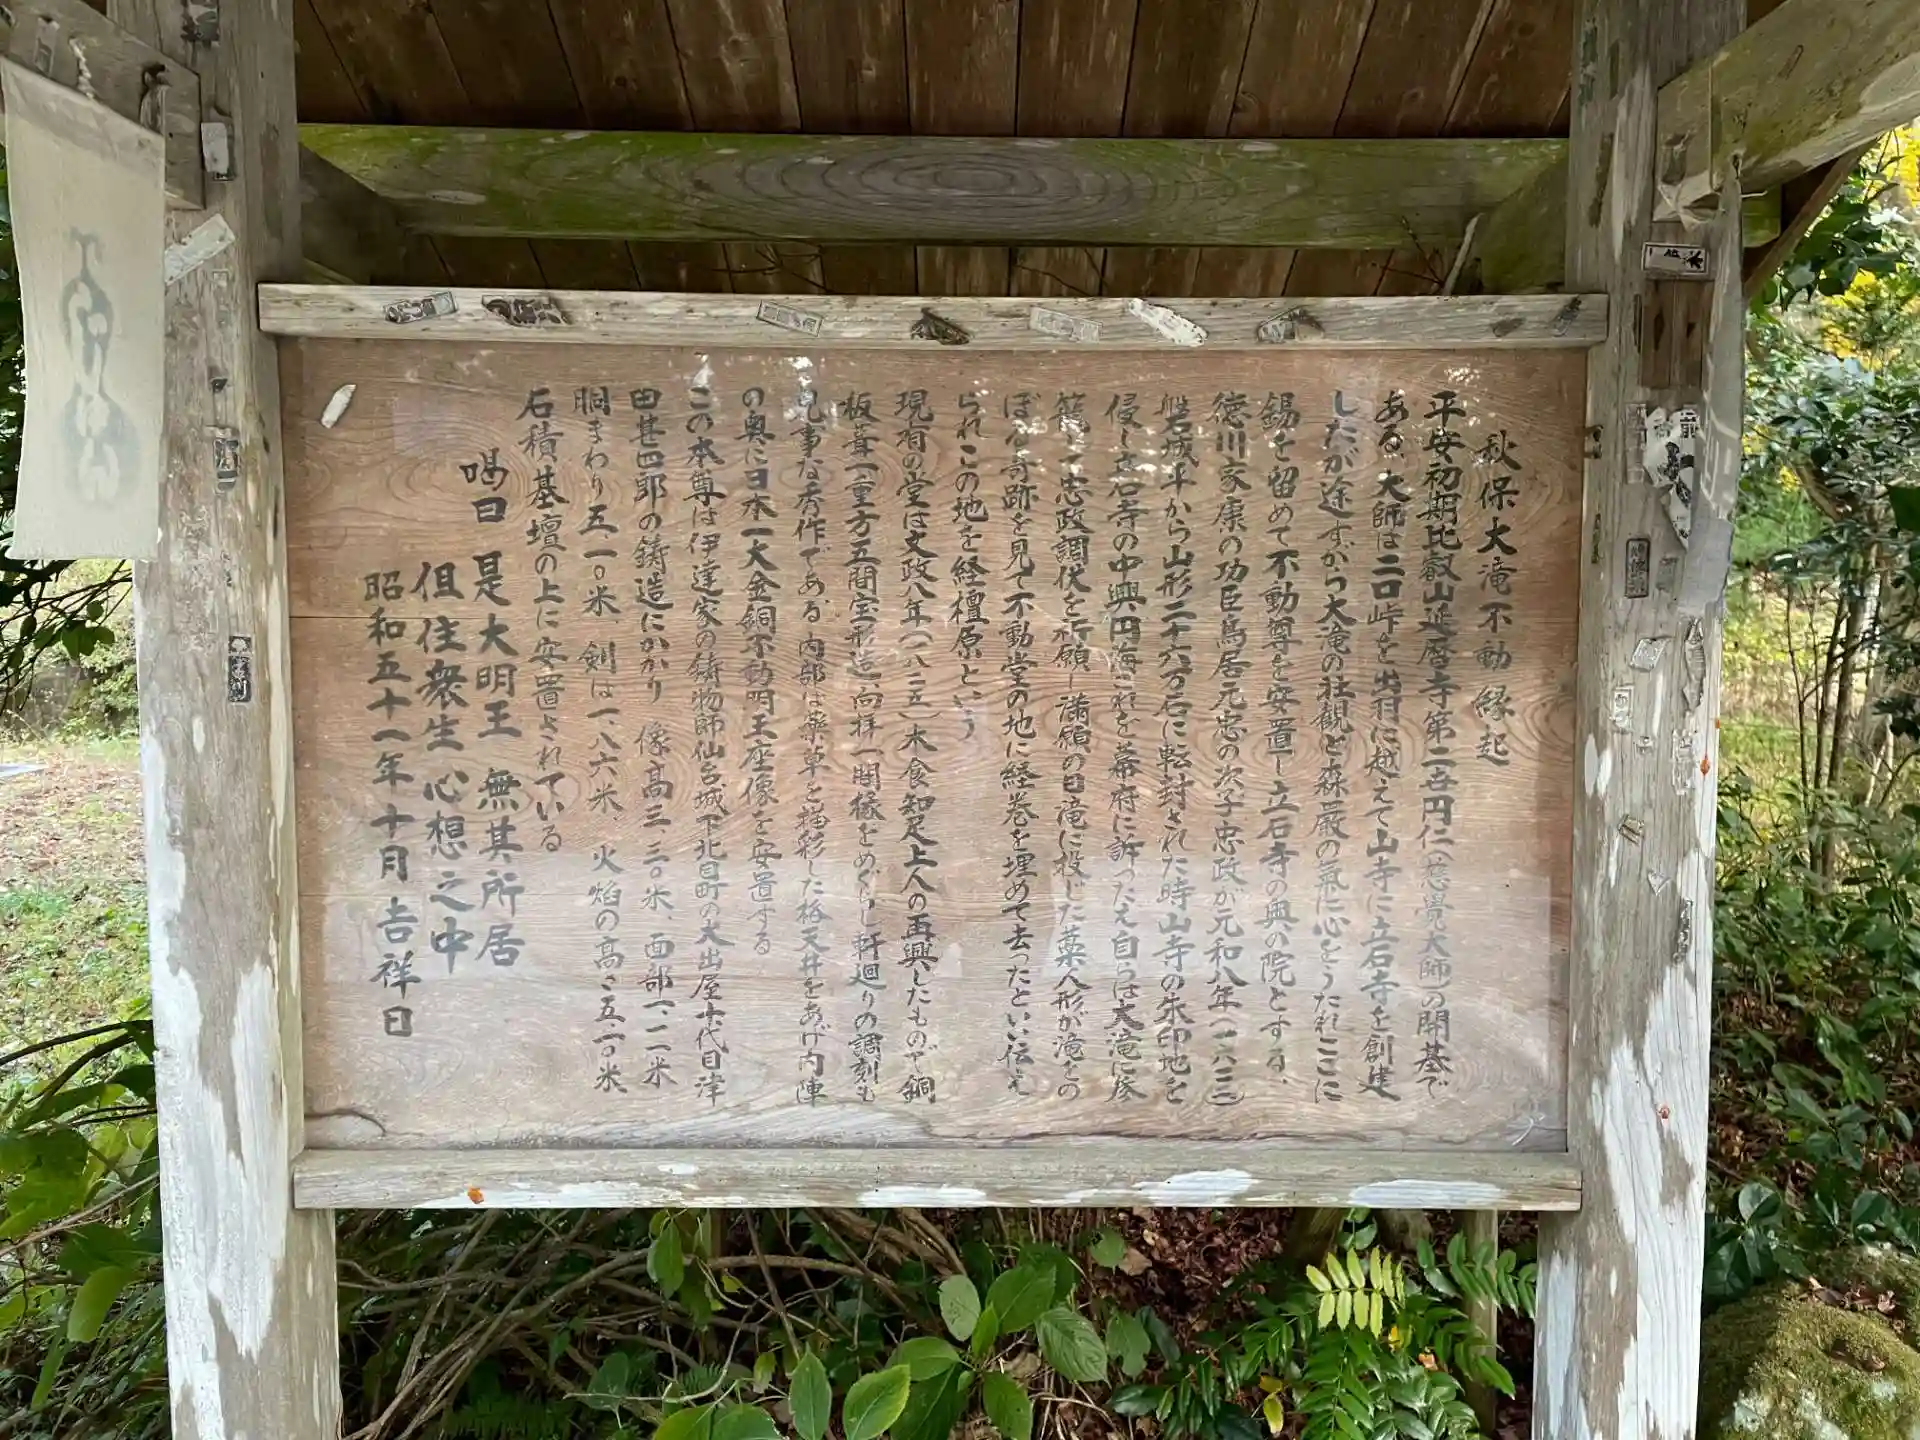 秋保大滝不動縁起
平安初期比叡山延暦寺第二吉円仁(慈覺大師)の開基で
ある、大師は二口峠を出羽に越えて山寺に立石寺を創建
したが途すがら大滝の壮観と森厳の氣に心をうたれここに
錫を留めて不動尊を安置し立石寺の奥の院とする、
徳川家康の功臣鳥居元忠の次子忠政が元和八年(一六二二)
磐城平から山形二十六万石に転封された時山寺の朱印地を
侵し立石寺の中興円海これを幕府に訴ったえ自らは大滝に参
籠して忠政調伏を祈願し満願の日滝に投じた藁人形が滝をの
ぼる奇跡を見て不動堂の地に経巻を埋めて去ったといい伝え
られこの地を経檀原という
現有の堂は文政八年(一八二五)木食知足上人の再興したもので銅
板葺一重方五間宝形造、向拝一間椽をめぐらし軒廻りの調刻も
見事な秀作である、内部は薬草を描彩した格天井をあげ内陣
の奥に日本一大金銅不動明王座像を安置する
この本尊は伊達家の鋳物師仙台城下北目町の大出屋十代目津
田甚四郎の鋳造にかかり 像高三、三〇米、面部一、二一米
胴まわり五、一〇米、剣は一、八六米、火焰の高さ五、一〇米、
石積基壇の上に安置されている
喝曰 是大明王 無其所居
但住衆生 心想之中
昭和五十一年十月吉祥日